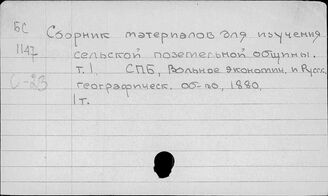 БС
1147
С-23
Сборник материалов для изучения
сельской поземельной общины.
т. 1. СПБ, Вольное экономич. и Русск.
географическ. об-во, 1880,
1 т.